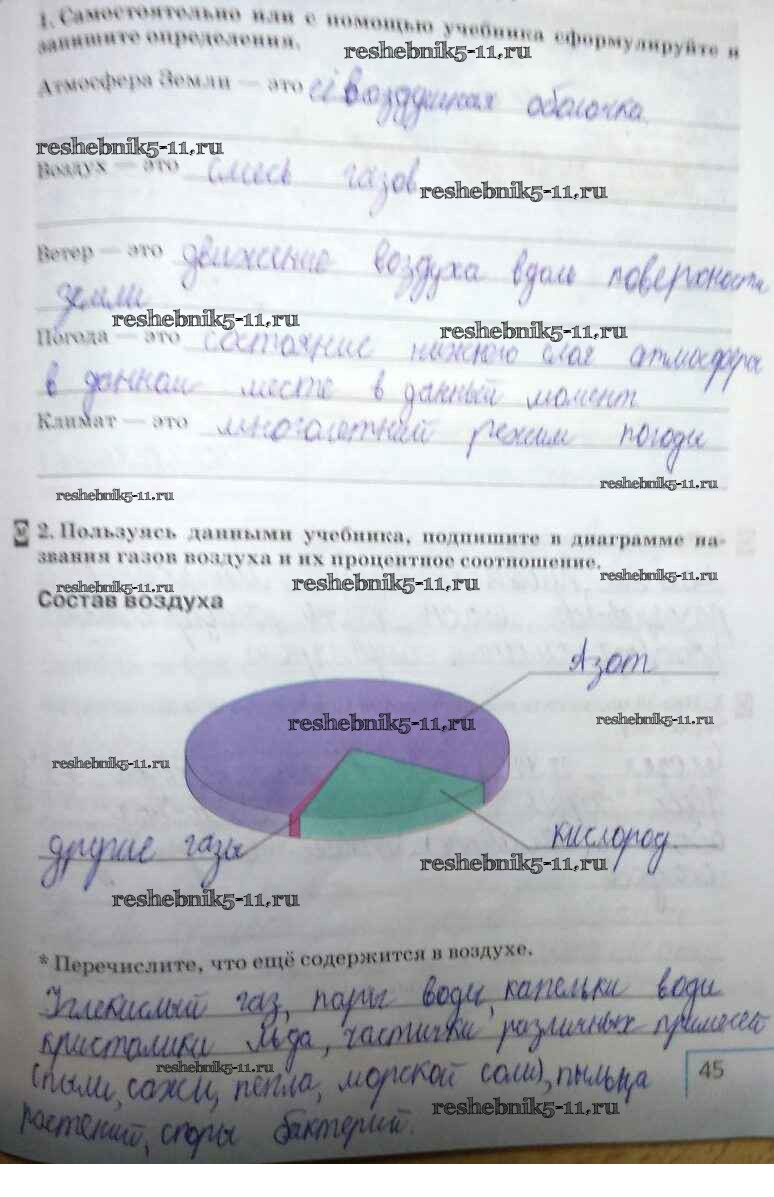 1. Самостоятельно или с помощью учебника сформулируйте и
запишите определения.
reshebnik5-11.ru
Атмосфера Земли — это её воздушная оболочка.
reshebnik5-11.ru
Воздух — это смесь газов
reshebnik5-11.ru
Ветер — это движение воздуха вдоль поверхности
земли
reshebnik5-11.ru
reshebnik5-11.ru
Погода — это состояние нижнего слоя атмосферы
в данном месте в данный момент
Климат — это многолетний режим погоды
reshebnik5-11.ru
reshebnik5-11.ru
2. Пользуясь данными учебника, подпишите в диаграмме на-
звания газов воздуха и их процентное соотношение.
reshebnik5-11.ru
reshebnik5-11.ru
reshebnik5-11.ru
Состав воздуха
Азот
reshebnik5-11.ru
reshebnik5-11.ru
reshebnik5-11.ru
другие газы
кислород.
reshebnik5-11.ru
reshebnik5-11.ru
* Перечислите, что ещё содержится в воздухе.
Углекислый газ, пары воды, капельки воды
кристалики льда, частички различных примесей
(пыли, сажи, пепла, морской соли), пыльца
reshebnik5-11.ru
45
растений, споры бактерий.
reshebnik5-11.ru